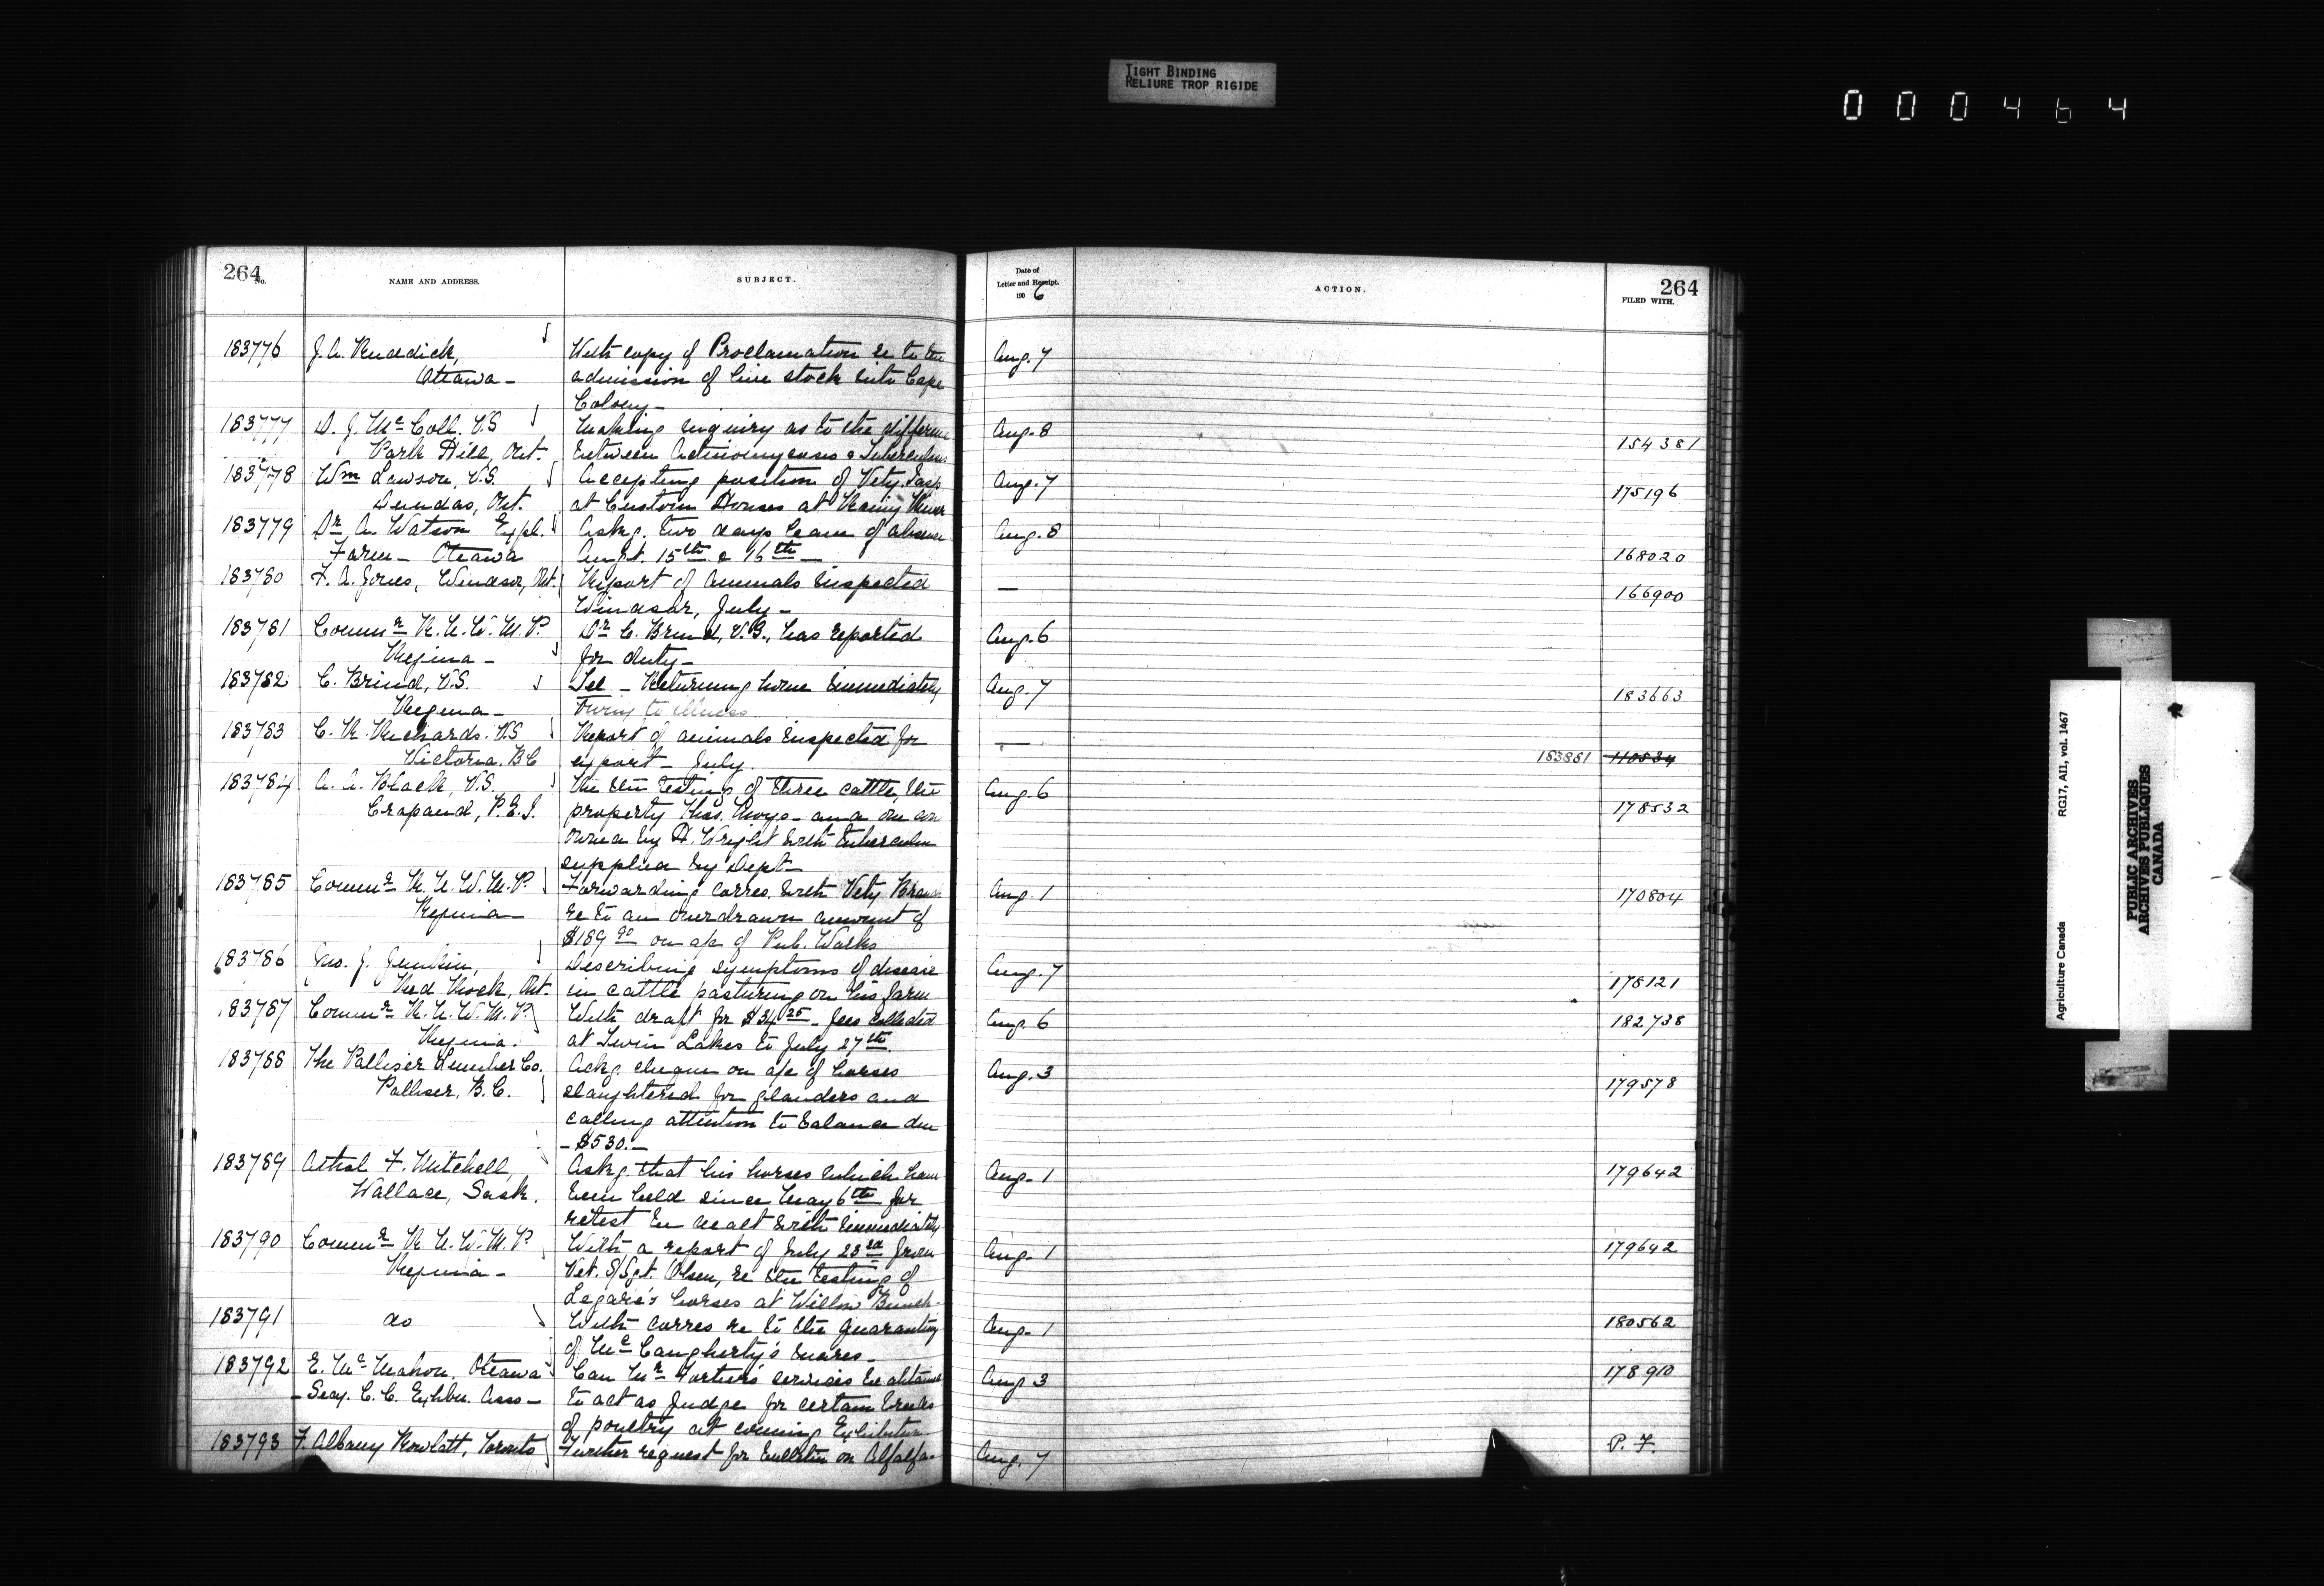 TIGHT BINDING
RELIURE TROP RIGIDE
000464
264
No.
NAME AND ADDRESS.
SUBJECT.
Date of
Letter and Receipt.
190 6
ACTION.
264
FILED WITH.
183776 J. A. Ruddick, With copy of Proclamation re to the Aug. 7
Ottawa - admission of live stock into Cape
Colony -
183777 D. J. Mc Coll. V.S Making enquiry as to the difference Aug. 8 154381
Park Hill, Ont. between Actinomycosis & Tuberculosis
183778 Wm Lawson, V.S. Accepting position of Vety. Insp Aug. 7 175196
Dundas, Ont. at Custom Houses at Rainy River
183779 Dr. A. Watson Expl. Askg. two days leave of absence Aug. 8
Farm - Ottawa Augt. 15th & 16th - 168020
183780 F. A. Jones, Windsor, Ont. Report of Animals inspected — 166900
Windsor, July -
183781 Commr R. N. W. M. P. Dr C. Brind, V.S., has reported Aug. 6
Regina - for duty -
183782 C. Brind, V.S. Tel - Returning home immediately Aug. 7 183663
Regina - owing to illness.
183783 C. R. Richards. V.S Report of animals inspected for —
Victoria. B.C export - July. 183881 110534
183784 A. A. Black, V.S. Re the testing of three cattle, the Aug. 6
Crapaud, P.E.I. property Thos. - and one cow 178532
owned by H. Wright with tuberculin
supplied by Dept -
183785 Commr R. N. W. M. P. Forwarding corres. with Vety Branch Aug. 1 170804
Regina - re to an overdrawn amount of
$189 90 on a/c of Pub. Works
183786 Jno. J. Junkin, Describing symptoms of disease Aug. 7
Red Rock, Ont. in cattle pasturing on his farm 178121
183787 Commr R. N. W. M. P. With draft for $34 25 - fees collected Aug. 6 182738
Regina. at Twin Lakes to July 27th.
183788 The Palliser Lumber Co. Ackg. cheque on a/c of horses Aug. 3
Palliser, B.C. slaughtered for glanders and 179578
calling attention to balance due
- $530. -
183789 Athol F. Mitchell, Askg. that his horses which have Aug. 1 179642
Wallace, Sask. been held since May 6th for
retest be dealt with immediately
183790 Commr R. N. W. M. P. With a report of July 23rd from Aug. 1 179642
Regina - Vet. S/Sgt. Olsen, re the testing of
Legaré's horses at Willow Bunch -
183791 do With corres re to the quarantining Aug. 1 180562
of Mc Caugherty's mares -
183792 E. Mc Mahon. Ottawa Can Mr Fortier's services be obtained Aug 3 178910
- Secy. C. C. Exhbn. Asso - to act as Judge for certain breeds
of poultry at coming Exhibition
183793 F. Albany Rowlatt, Toronto Further request for bulletin on Alfalfa - Aug. 7 P. F.
Agriculture Canada RG17, AII, vol. 1467
PUBLIC ARCHIVES
ARCHIVES PUBLIQUES
CANADA